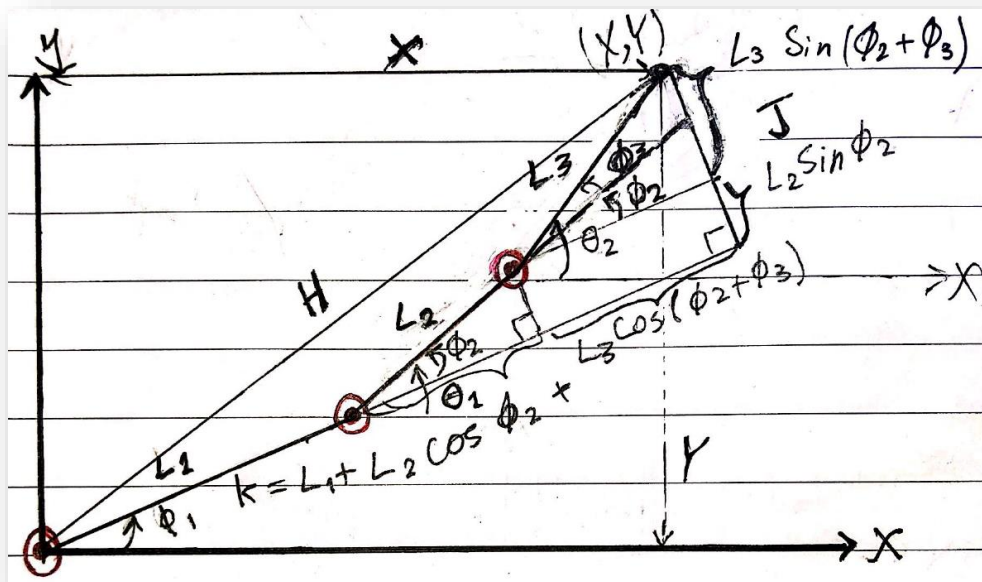 y
X
(X,Y)
L3 Sin(ϕ2+ϕ3)
J
L2 Sin ϕ2
L3
ϕ3
ϕ2
θ2
X
H
L2
ϕ2
θ1
L3 cos(ϕ2+ϕ3)
L1
k = L1 + L2 cos ϕ2 +
Y
ϕ1
X